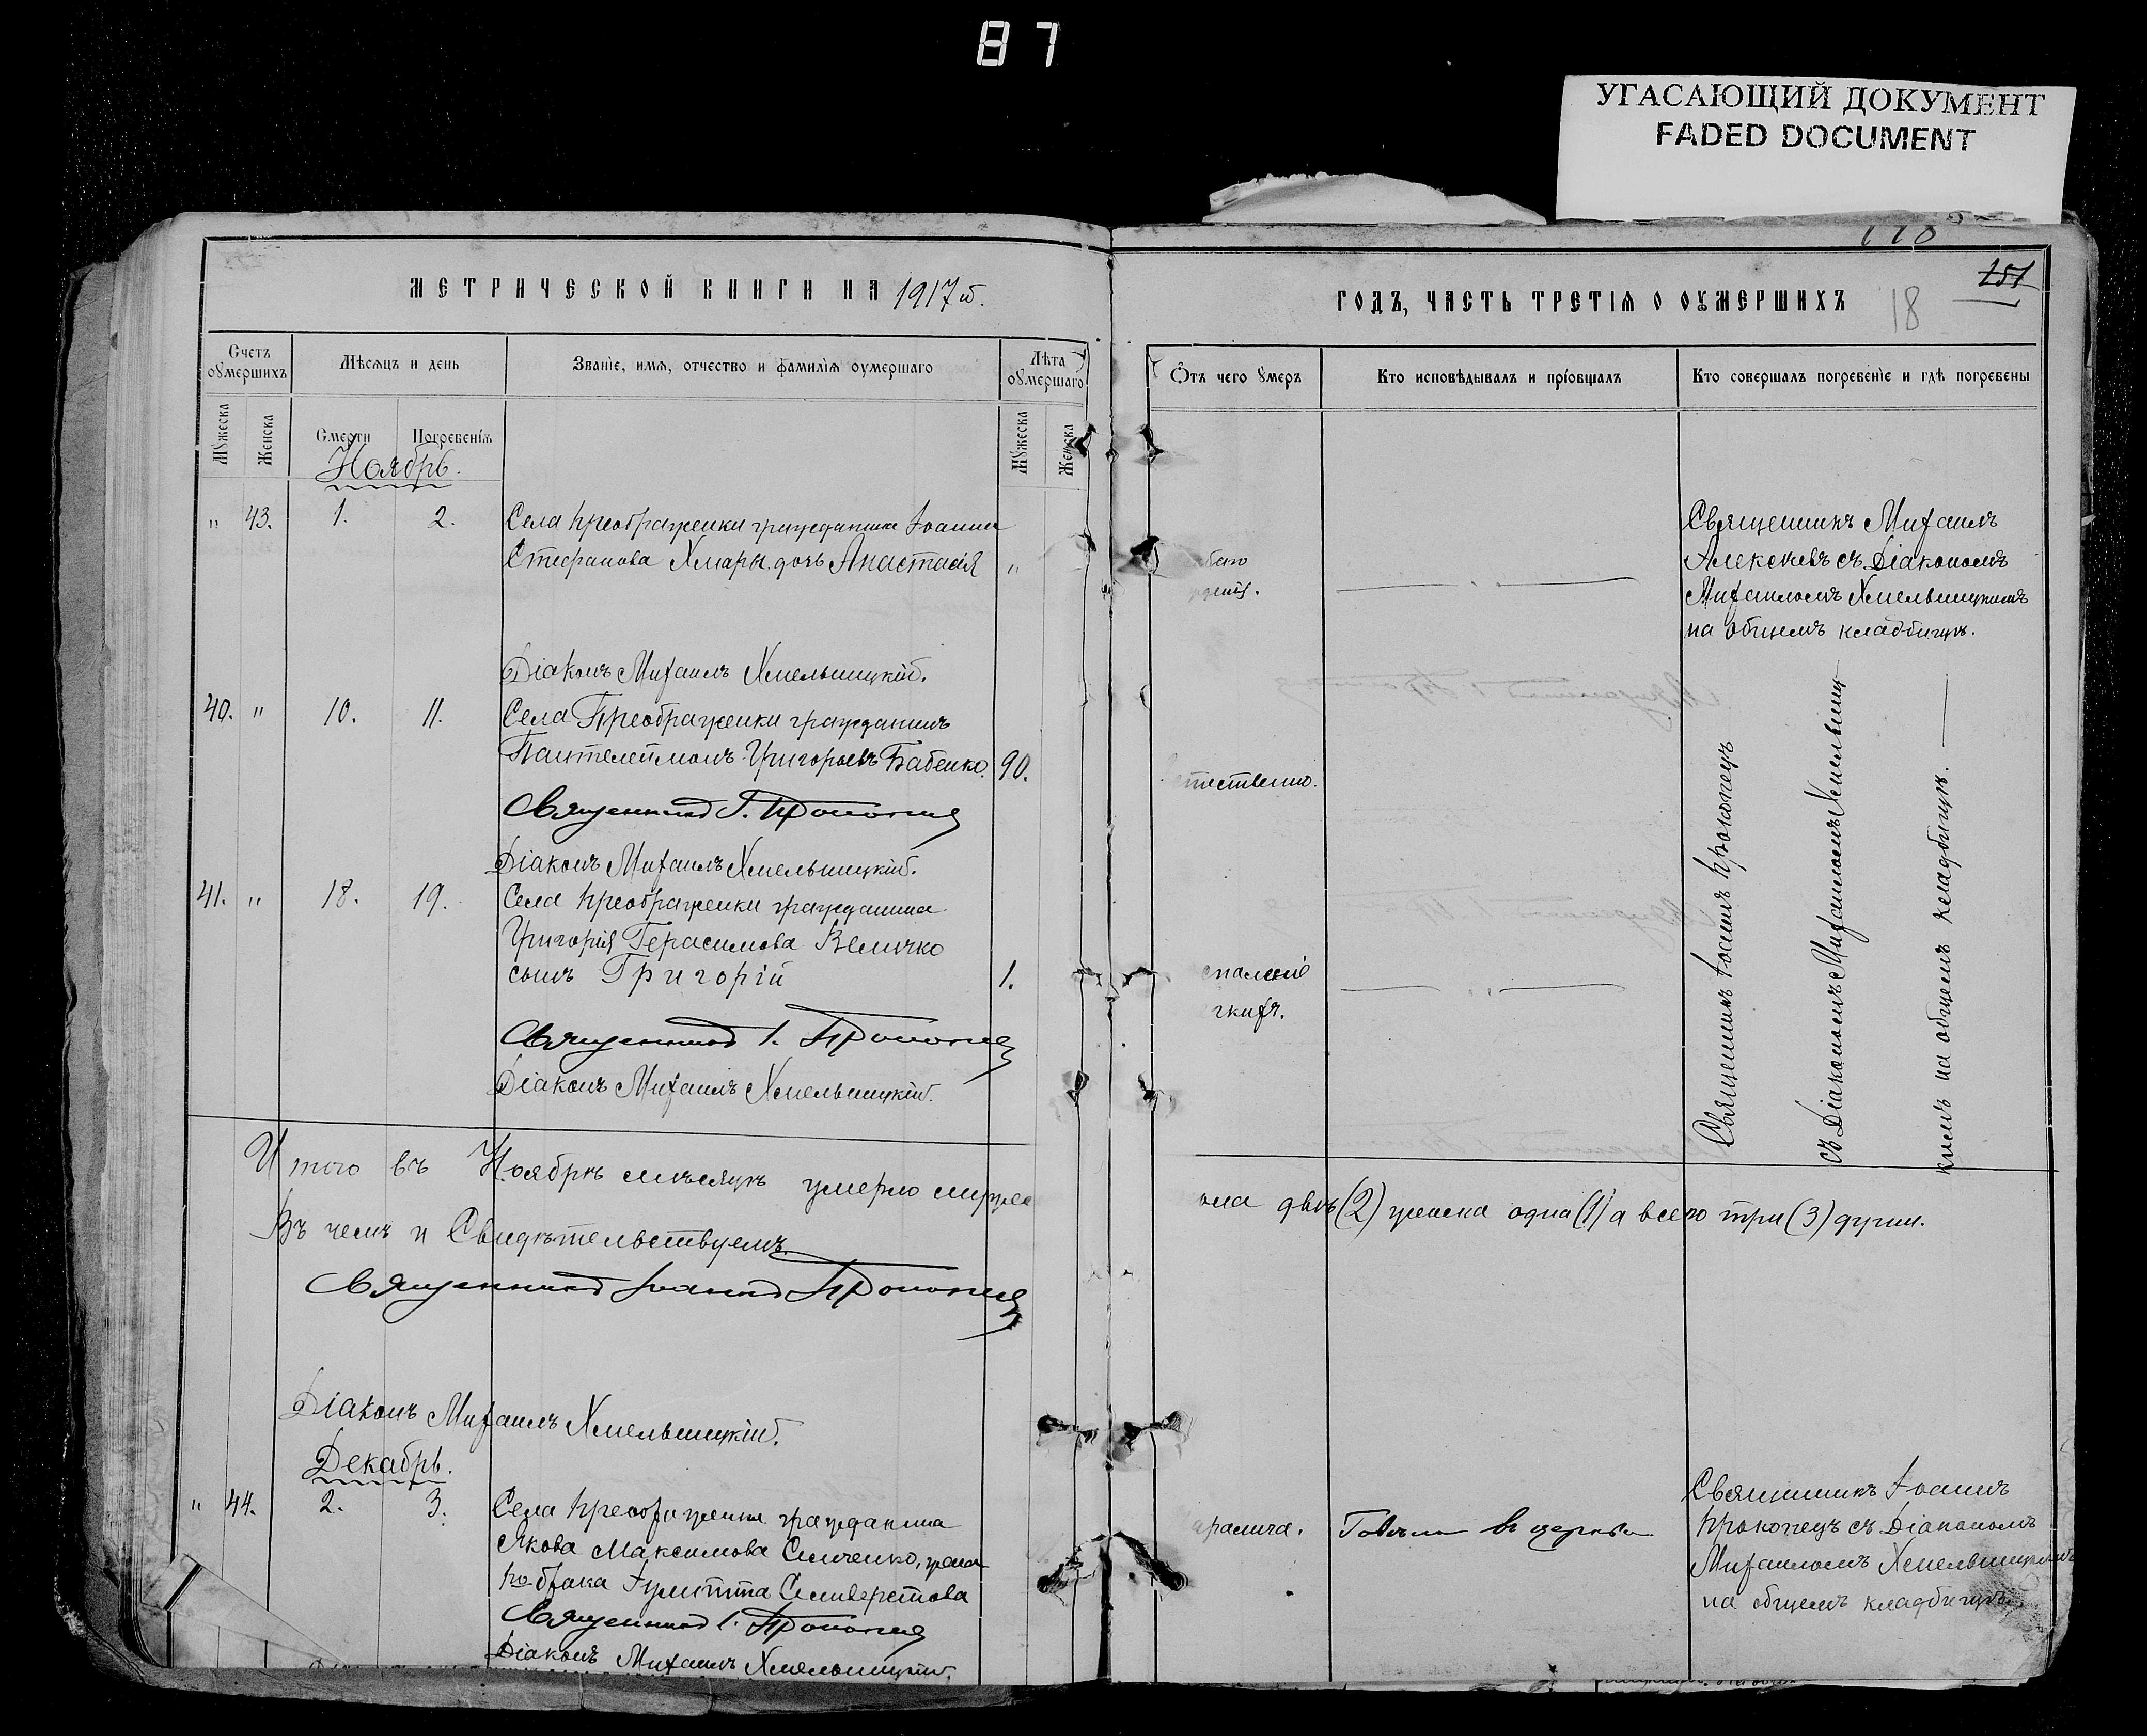 87
УГАСАЮЩИЙ ДОКУМЕНТ
FADED DOCUMENT
118
151
18
МЕТРИЧЕСКОЙ КНИГИ НА 1917й.
ГОДЪ, ЧАСТЬ ТРЕТІѦ О ОУМЕРШИХЪ
Счетъ оумершихъ
Мѣсѧцъ и день
Званіе, имѧ, отчество и фамиліѧ оумершаго
Лѣта оумершаго
Ѿтъ чего оумеръ
Кто исповѣдывалъ и пріобщалъ
Кто совершалъ погребеніе и гдѣ погребены
Мужеска
Женска
Смерти
Погребеніѧ
Мужеска
Женска
Ноябрь.
" 43. 1. 2. Села Преображенки гражданина Іоанна
Стефанова Хмары дочь Анастасія "
Священникъ Михаилъ
Алексѣевъ съ Діакономъ
Михаиломъ Хмельницкимъ
на общемъ кладбищѣ.
Діаконъ Михаилъ Хмельницкій.
40. " 10. 11. Села Преображенки гражданинъ
Пантелеймонъ Григорьевъ Бабенко. 90.
тественно.
Священникъ І. Прокопец
Діаконъ Михаилъ Хмельницкій.
41. " 18. 19. Села Преображенки гражданина
Григорія Герасимова Величко
сынъ Григорій 1.
спаленіе
гкихъ.
Священникъ І. Прокопец
Діаконъ Михаилъ Хмельницкій.
Священникъ Іоаннъ Прокопецъ
съ Діакономъ Михаиломъ Хмельниц
кимъ на общемъ кладбищѣ.
Итого въ Ноябрѣ мѣсяцѣ умерло мужес
кла двѣ (2) женска одна (1) а всего три (3) души.
Въ чемъ и Свидѣтельствуемъ
Священникъ Іоаннъ Прокопец
Діаконъ Михаилъ Хмельницкій.
Декабрь.
" 44. 2. 3. Села Преображенки гражданина
Якова Максимова Симченко, жена
по-брака Іулитта Селиверстова
аралича.
Говѣла въ церкви
Священникъ Іоаннъ
Прокопецъ съ Діакономъ
Михаиломъ Хмельницкимъ
на общемъ кладбищѣ.
Священникъ І. Прокопец
Діаконъ Михаилъ Хмельницкій.